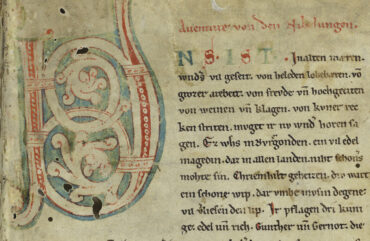 Auenture von den Nibelungen.
NS IST. In alten mæren.
wnders vil geseit. von heleden lobebæren. von
grozer arebeit. von frevde vn̄ hochgeciten
von weinen vn̄ klagen. von kvner rec
ken striten. mvget ir nv wnder horen sa
gen. Ez whs in Bvrgonden. ein vil edel
magedin. daz in allen landen. niht schoners
mohte sin. Chriemhilt geheizen. div wart
ein schone wip. dar vmbe mvsin degene
vil vliesen den lip. Ir pflagen dri kuni
ge. edel vn̄ rich. Gunther vn̄ Gernot. die